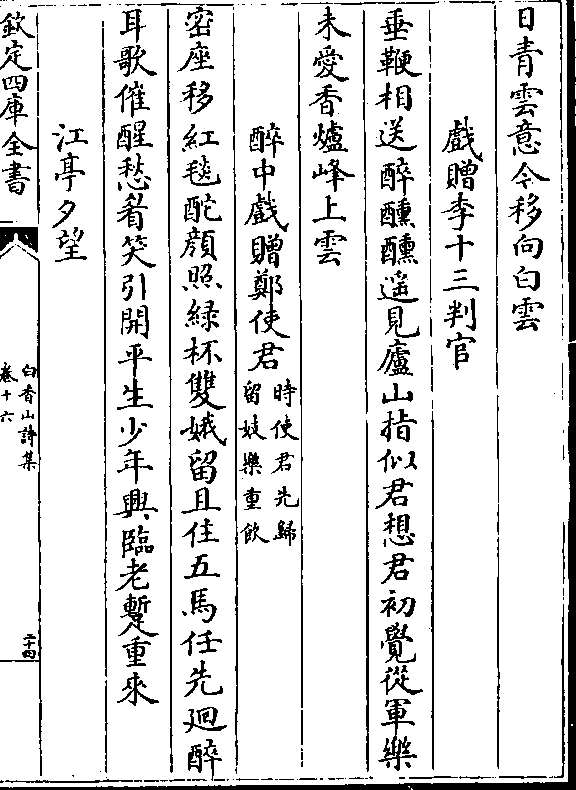 日青雲意今移向白雲
戲贈李十三判官
垂鞭相送醉醺醺遥見廬山指似君想君初覺從軍樂
未愛香爐峰上雲
醉中戲贈鄭使君時使君先歸
留妓樂重飲
密座移紅毯酡顔照緑杯雙娥留且住五馬任先迴醉
耳歌催醒愁眉笑引開平生少年興臨老蹔重來
江亭夕望
欽定四庫全書
白香山詩集
卷十六
二十四